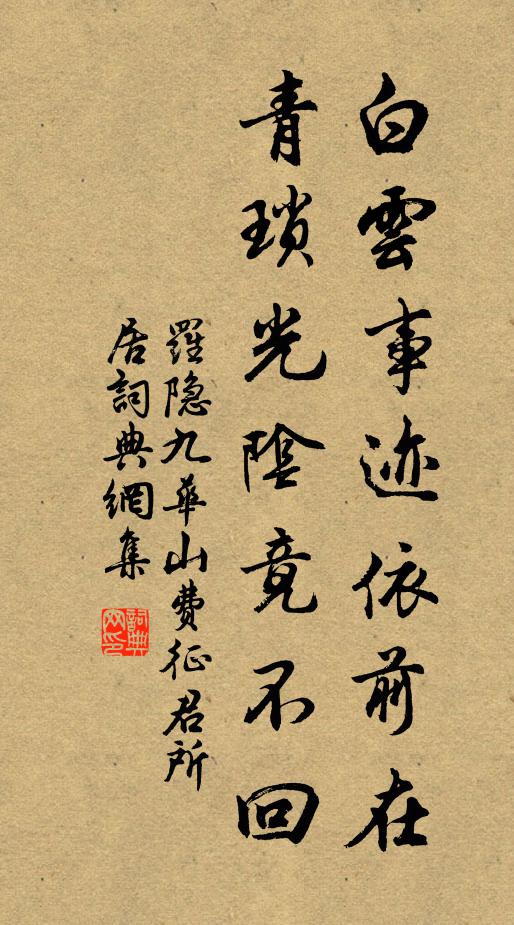 白雲事迹依前在
青瑣光陰竟不回
羅隐九華山費征君所
居詞典網集
詞典
网印